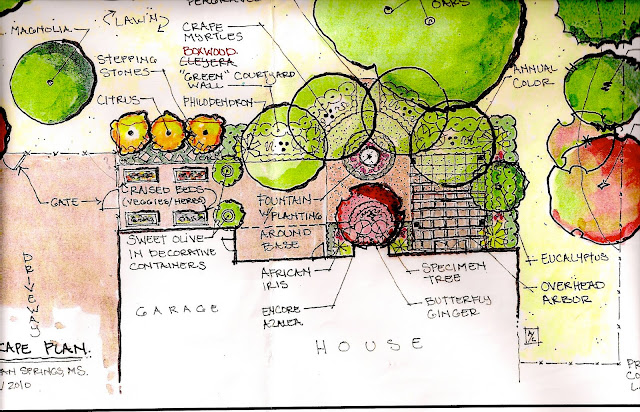 MAGNOLIA
LAWN
CRAPE
MYRTLES
BOXWOOD
CLEYERA
"GREEN" COURTYARD
WALL
PHILODENDRON
STEPPING
STONES
CITRUS
OAKS
ANNUAL
COLOR
GATE
RAISED BEDS
(VEGGIES/HERBS)
FOUNTAIN
W/PLANTING
AROUND
BASE
SWEET OLIVE
IN DECORATIVE
CONTAINERS
AFRICAN
IRIS
ENCORE
AZALEA
SPECIMEN
TREE
BUTTERFLY
GINGER
EUCALYPTUS
OVERHEAD
ARBOR
DRIVEWAY
GARAGE
HOUSE
CAPE PLAN.
AN SPRINGS, MS.
/2010
PR
CO
L